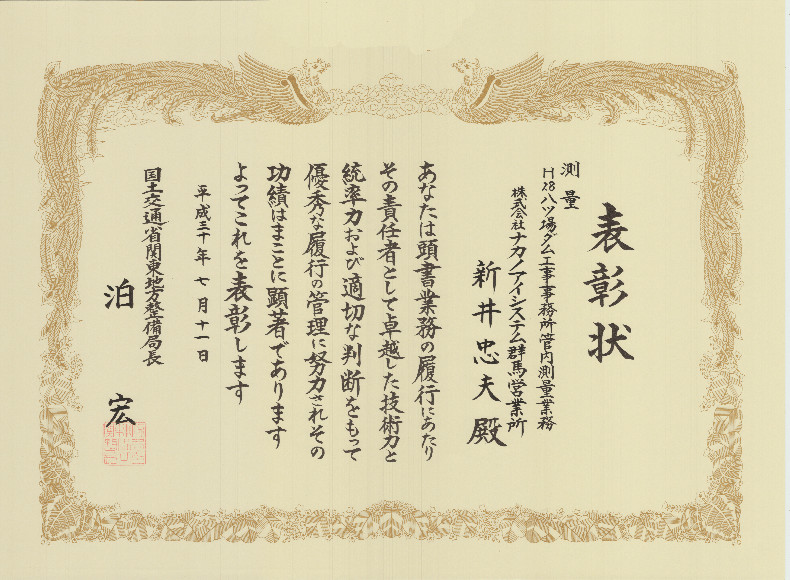 表彰状
測量
H28八ッ場ダム工事事務所管内測量業務
株式会社ナカノアイシステム群馬営業所
新井忠夫殿
あなたは頭書業務の履行にあたり
その責任者として卓越した技術力と
統率力および適切な判断をもって
優秀な履行の管理に努力されその
功績はまことに顕著であります
よってこれを表彰します
平成三十年七月十一日
国土交通省関東地方整備局長
泊宏